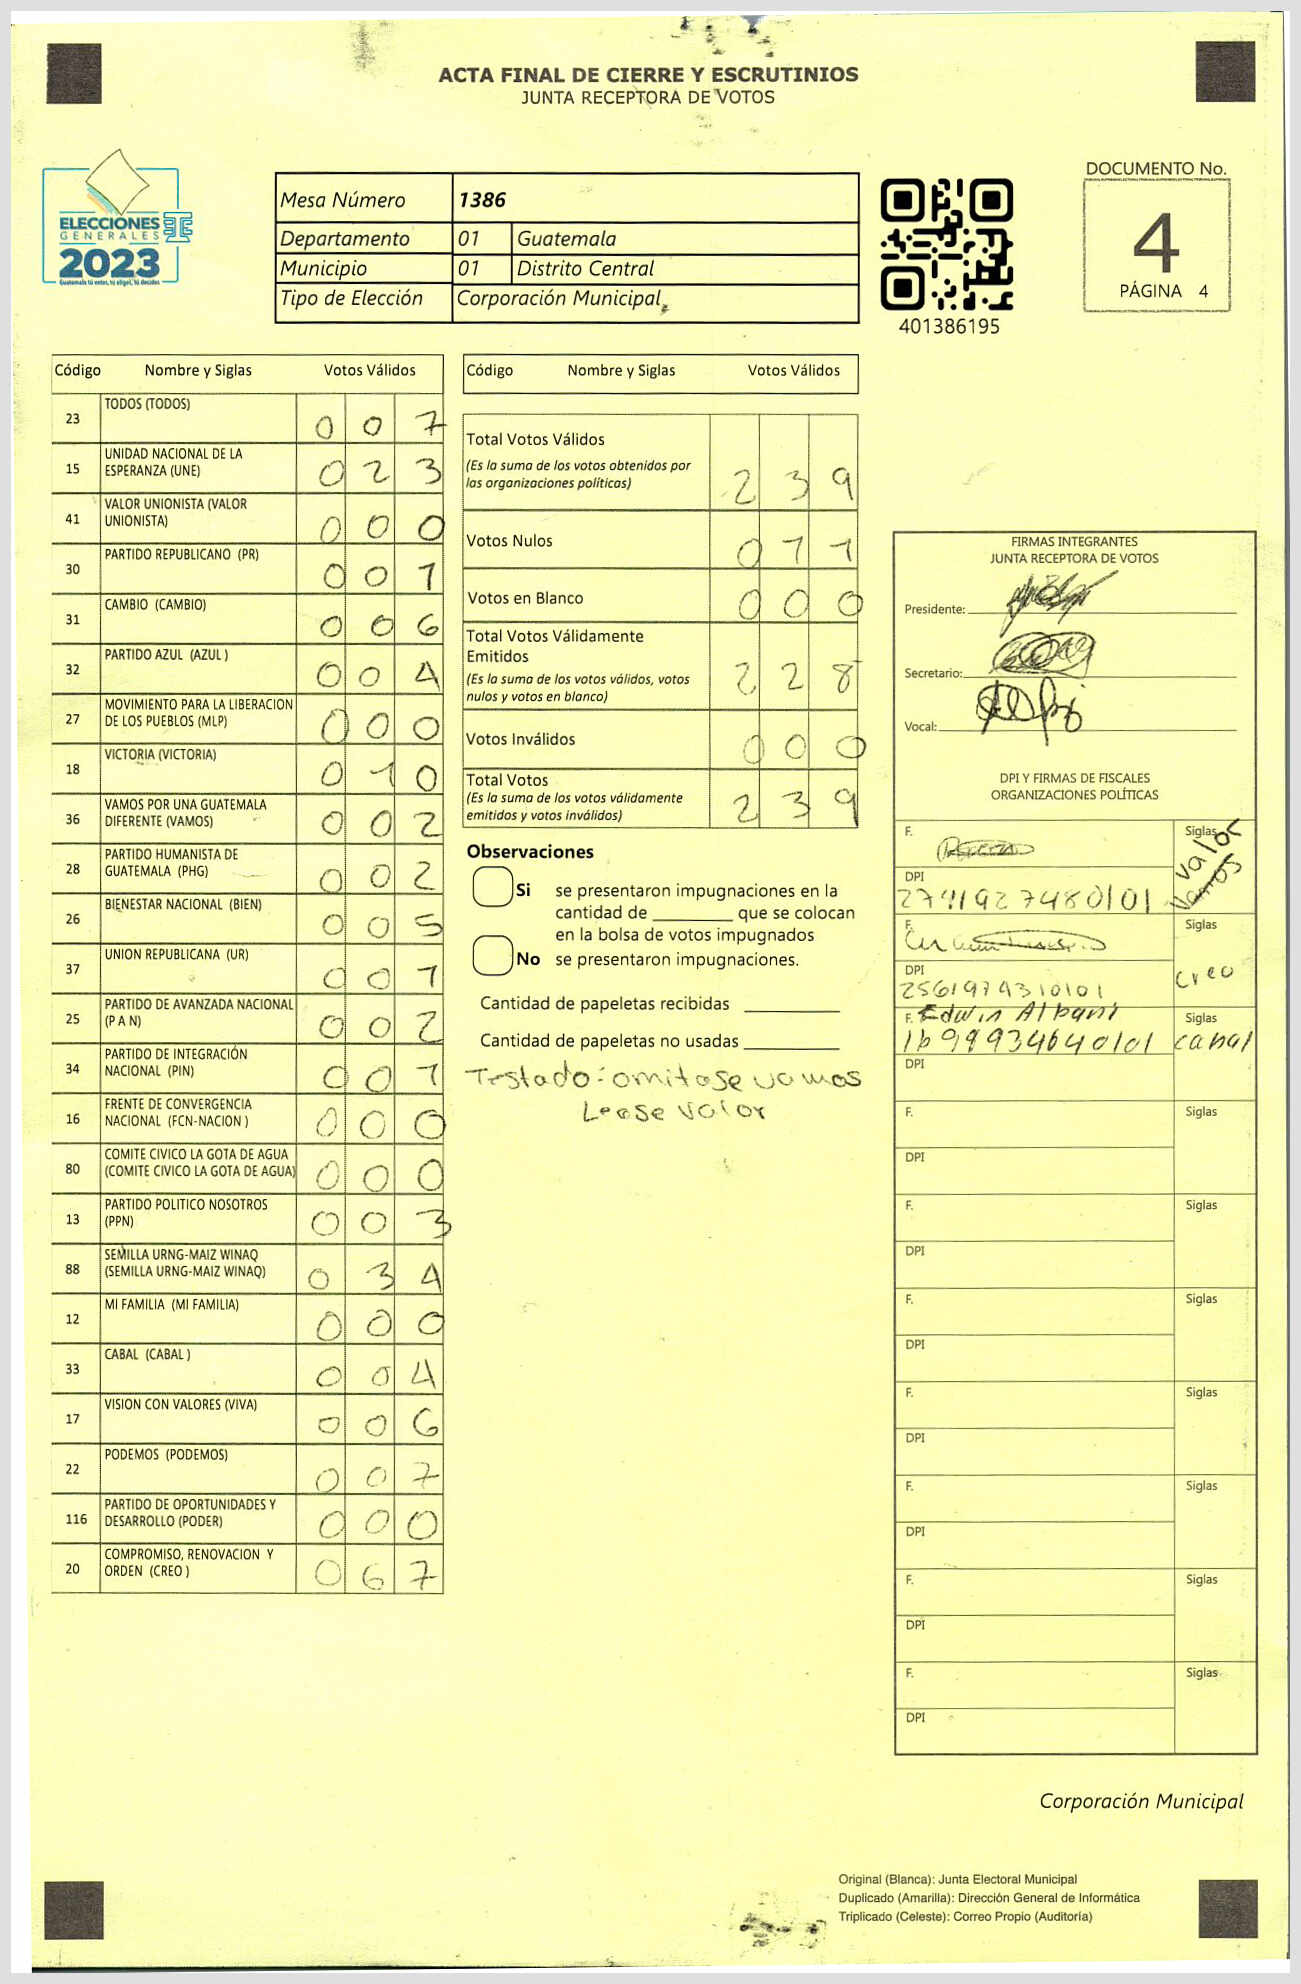 ACTA FINAL DE CIERRE Y ESCRUTINIOS
JUNTA RECEPTORA DE VOTOS
ELECCIONES
GENERALES
2023
Guatemala tú votas, tú eliges, tú decides
Mesa Número 1386
Departamento 01 Guatemala
Municipio 01 Distrito Central
Tipo de Elección Corporación Municipal
401386195
DOCUMENTO No.
4
PÁGINA 4
Código Nombre y Siglas Votos Válidos
23 TODOS (TODOS) 0 0 7
15 UNIDAD NACIONAL DE LA ESPERANZA (UNE) 0 2 3
41 VALOR UNIONISTA (VALOR UNIONISTA) 0 0 0
30 PARTIDO REPUBLICANO (PR) 0 0 1
31 CAMBIO (CAMBIO) 0 0 6
32 PARTIDO AZUL (AZUL ) 0 0 4
27 MOVIMIENTO PARA LA LIBERACION DE LOS PUEBLOS (MLP) 0 0 0
18 VICTORIA (VICTORIA) 0 1 0
36 VAMOS POR UNA GUATEMALA DIFERENTE (VAMOS) 0 0 2
28 PARTIDO HUMANISTA DE GUATEMALA (PHG) 0 0 2
26 BIENESTAR NACIONAL (BIEN) 0 0 5
37 UNION REPUBLICANA (UR) 0 0 1
25 PARTIDO DE AVANZADA NACIONAL (P A N) 0 0 2
34 PARTIDO DE INTEGRACIÓN NACIONAL (PIN) 0 0 1
16 FRENTE DE CONVERGENCIA NACIONAL (FCN-NACION ) 0 0 0
80 COMITE CIVICO LA GOTA DE AGUA (COMITE CIVICO LA GOTA DE AGUA) 0 0 0
13 PARTIDO POLITICO NOSOTROS (PPN) 0 0 3
88 SEMILLA URNG-MAIZ WINAQ (SEMILLA URNG-MAIZ WINAQ) 0 3 4
12 MI FAMILIA (MI FAMILIA) 0 0 0
33 CABAL (CABAL ) 0 0 4
17 VISION CON VALORES (VIVA) 0 0 6
22 PODEMOS (PODEMOS) 0 0 7
116 PARTIDO DE OPORTUNIDADES Y DESARROLLO (PODER) 0 0 0
20 COMPROMISO, RENOVACION Y ORDEN (CREO ) 0 6 7
Código Nombre y Siglas Votos Válidos
Total Votos Válidos 2 3 9
(Es la suma de los votos obtenidos por
las organizaciones políticas)
Votos Nulos 0 1 1
Votos en Blanco 0 0 0
Total Votos Válidamente
Emitidos 2 2 8
(Es la suma de los votos válidos, votos
nulos y votos en blanco)
Votos Inválidos 0 0 0
Total Votos 2 3 9
(Es la suma de los votos válidamente
emitidos y votos inválidos)
Observaciones
Si se presentaron impugnaciones en la
cantidad de ________ que se colocan
en la bolsa de votos impugnados
No se presentaron impugnaciones.
Cantidad de papeletas recibidas
Cantidad de papeletas no usadas
Testado: omitase vamos
Lease Valor
FIRMAS INTEGRANTES
JUNTA RECEPTORA DE VOTOS
Presidente:
Secretario:
Vocal:
DPI Y FIRMAS DE FISCALES
ORGANIZACIONES POLÍTICAS
F. Siglas
Valor
Vamos
DPI
2741927480101
F. Siglas
DPI Creo
2561979310101
F. Edwin Siglas
1699934640101 cabal
DPI
F. Siglas
DPI
F. Siglas
DPI
F. Siglas
DPI
F. Siglas
DPI
F. Siglas
DPI
F. Siglas
DPI
F. Siglas
DPI
Corporación Municipal
Original (Blanca): Junta Electoral Municipal
Duplicado (Amarilla): Dirección General de Informática
Triplicado (Celeste): Correo Propio (Auditoría)